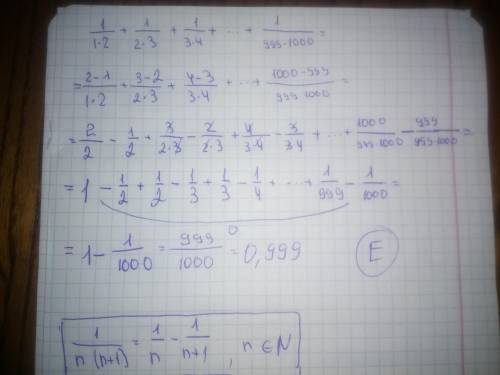 1/(1·2) + 1/(2·3) + 1/(3·4) + ... + 1/(999·1000) =
= (2-1)/(1·2) + (3-2)/(2·3) + (4-3)/(3·4) + ... + (1000-999)/(999·1000) =
= 2/2 - 1/2 + 3/(2·3) - 2/(2·3) + 4/(3·4) - 3/(3·4) + ... + 1000/(999·1000) - 999/(999·1000) =
= 1 - 1/2 + 1/2 - 1/3 + 1/3 - 1/4 + ... + 1/999 - 1/1000 =
0
= 1 - 1/1000 = 999/1000 = 0,999 E
1/(n(n+1)) = 1/n - 1/(n+1), n ∈ N